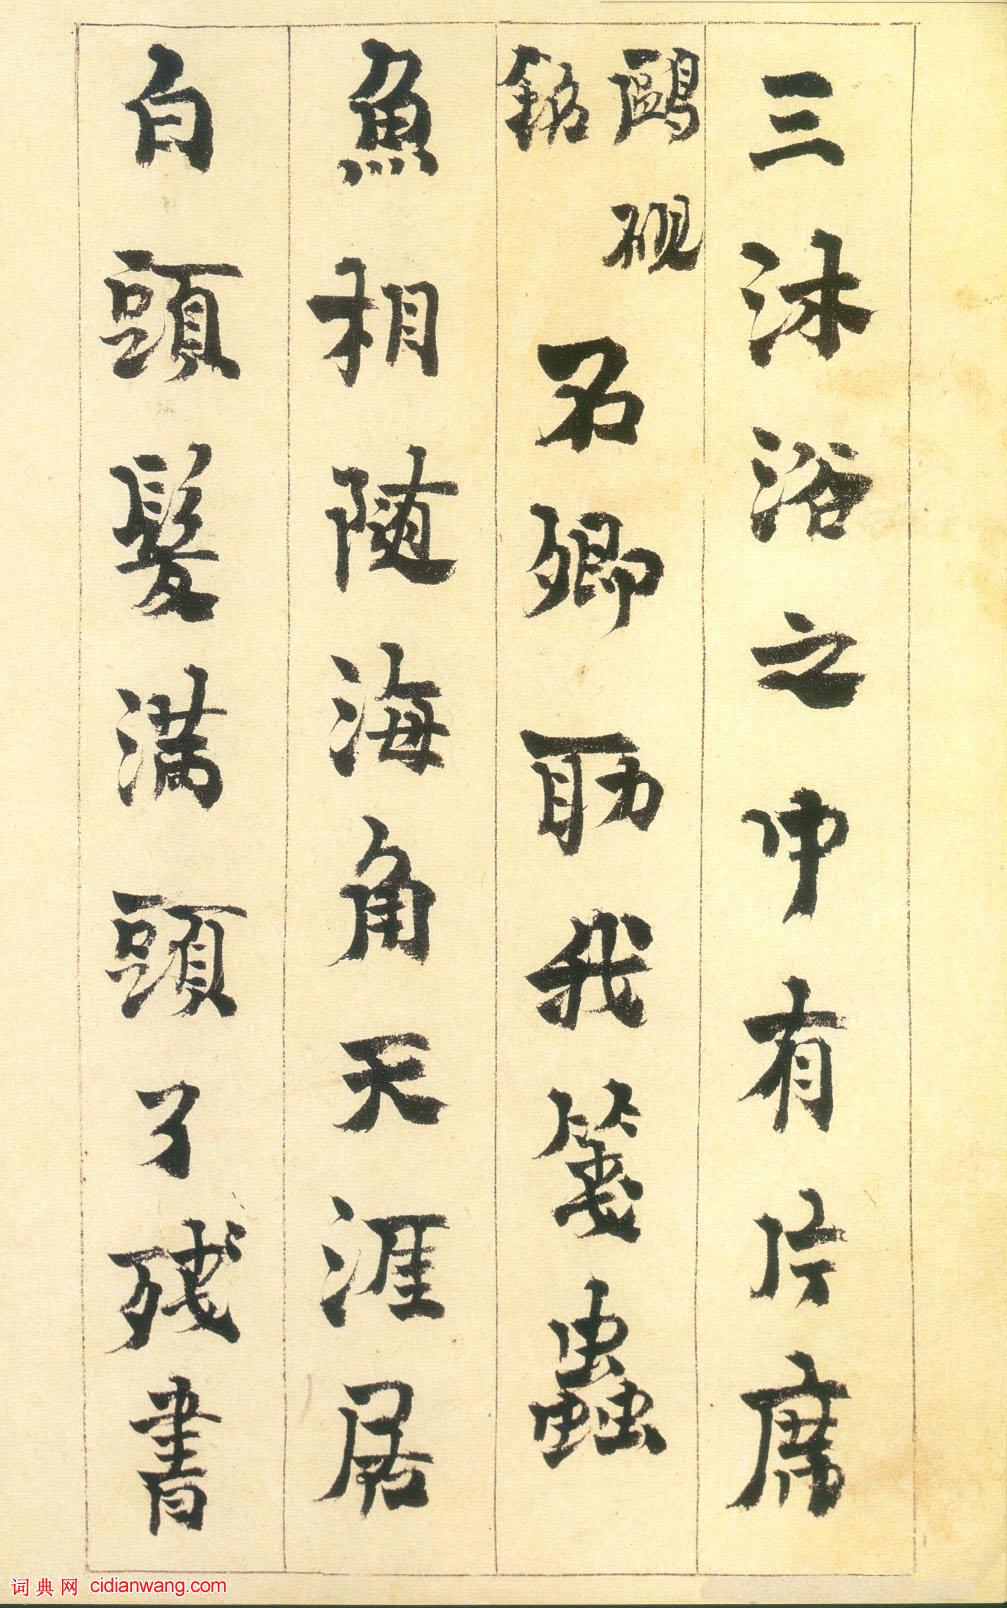 三沐浴之中有片席
鷗硯
銘
石卿助我箋蟲
魚相随海角天涯居
白頭髮滿頭了殘書
词典网 cidianwang.com